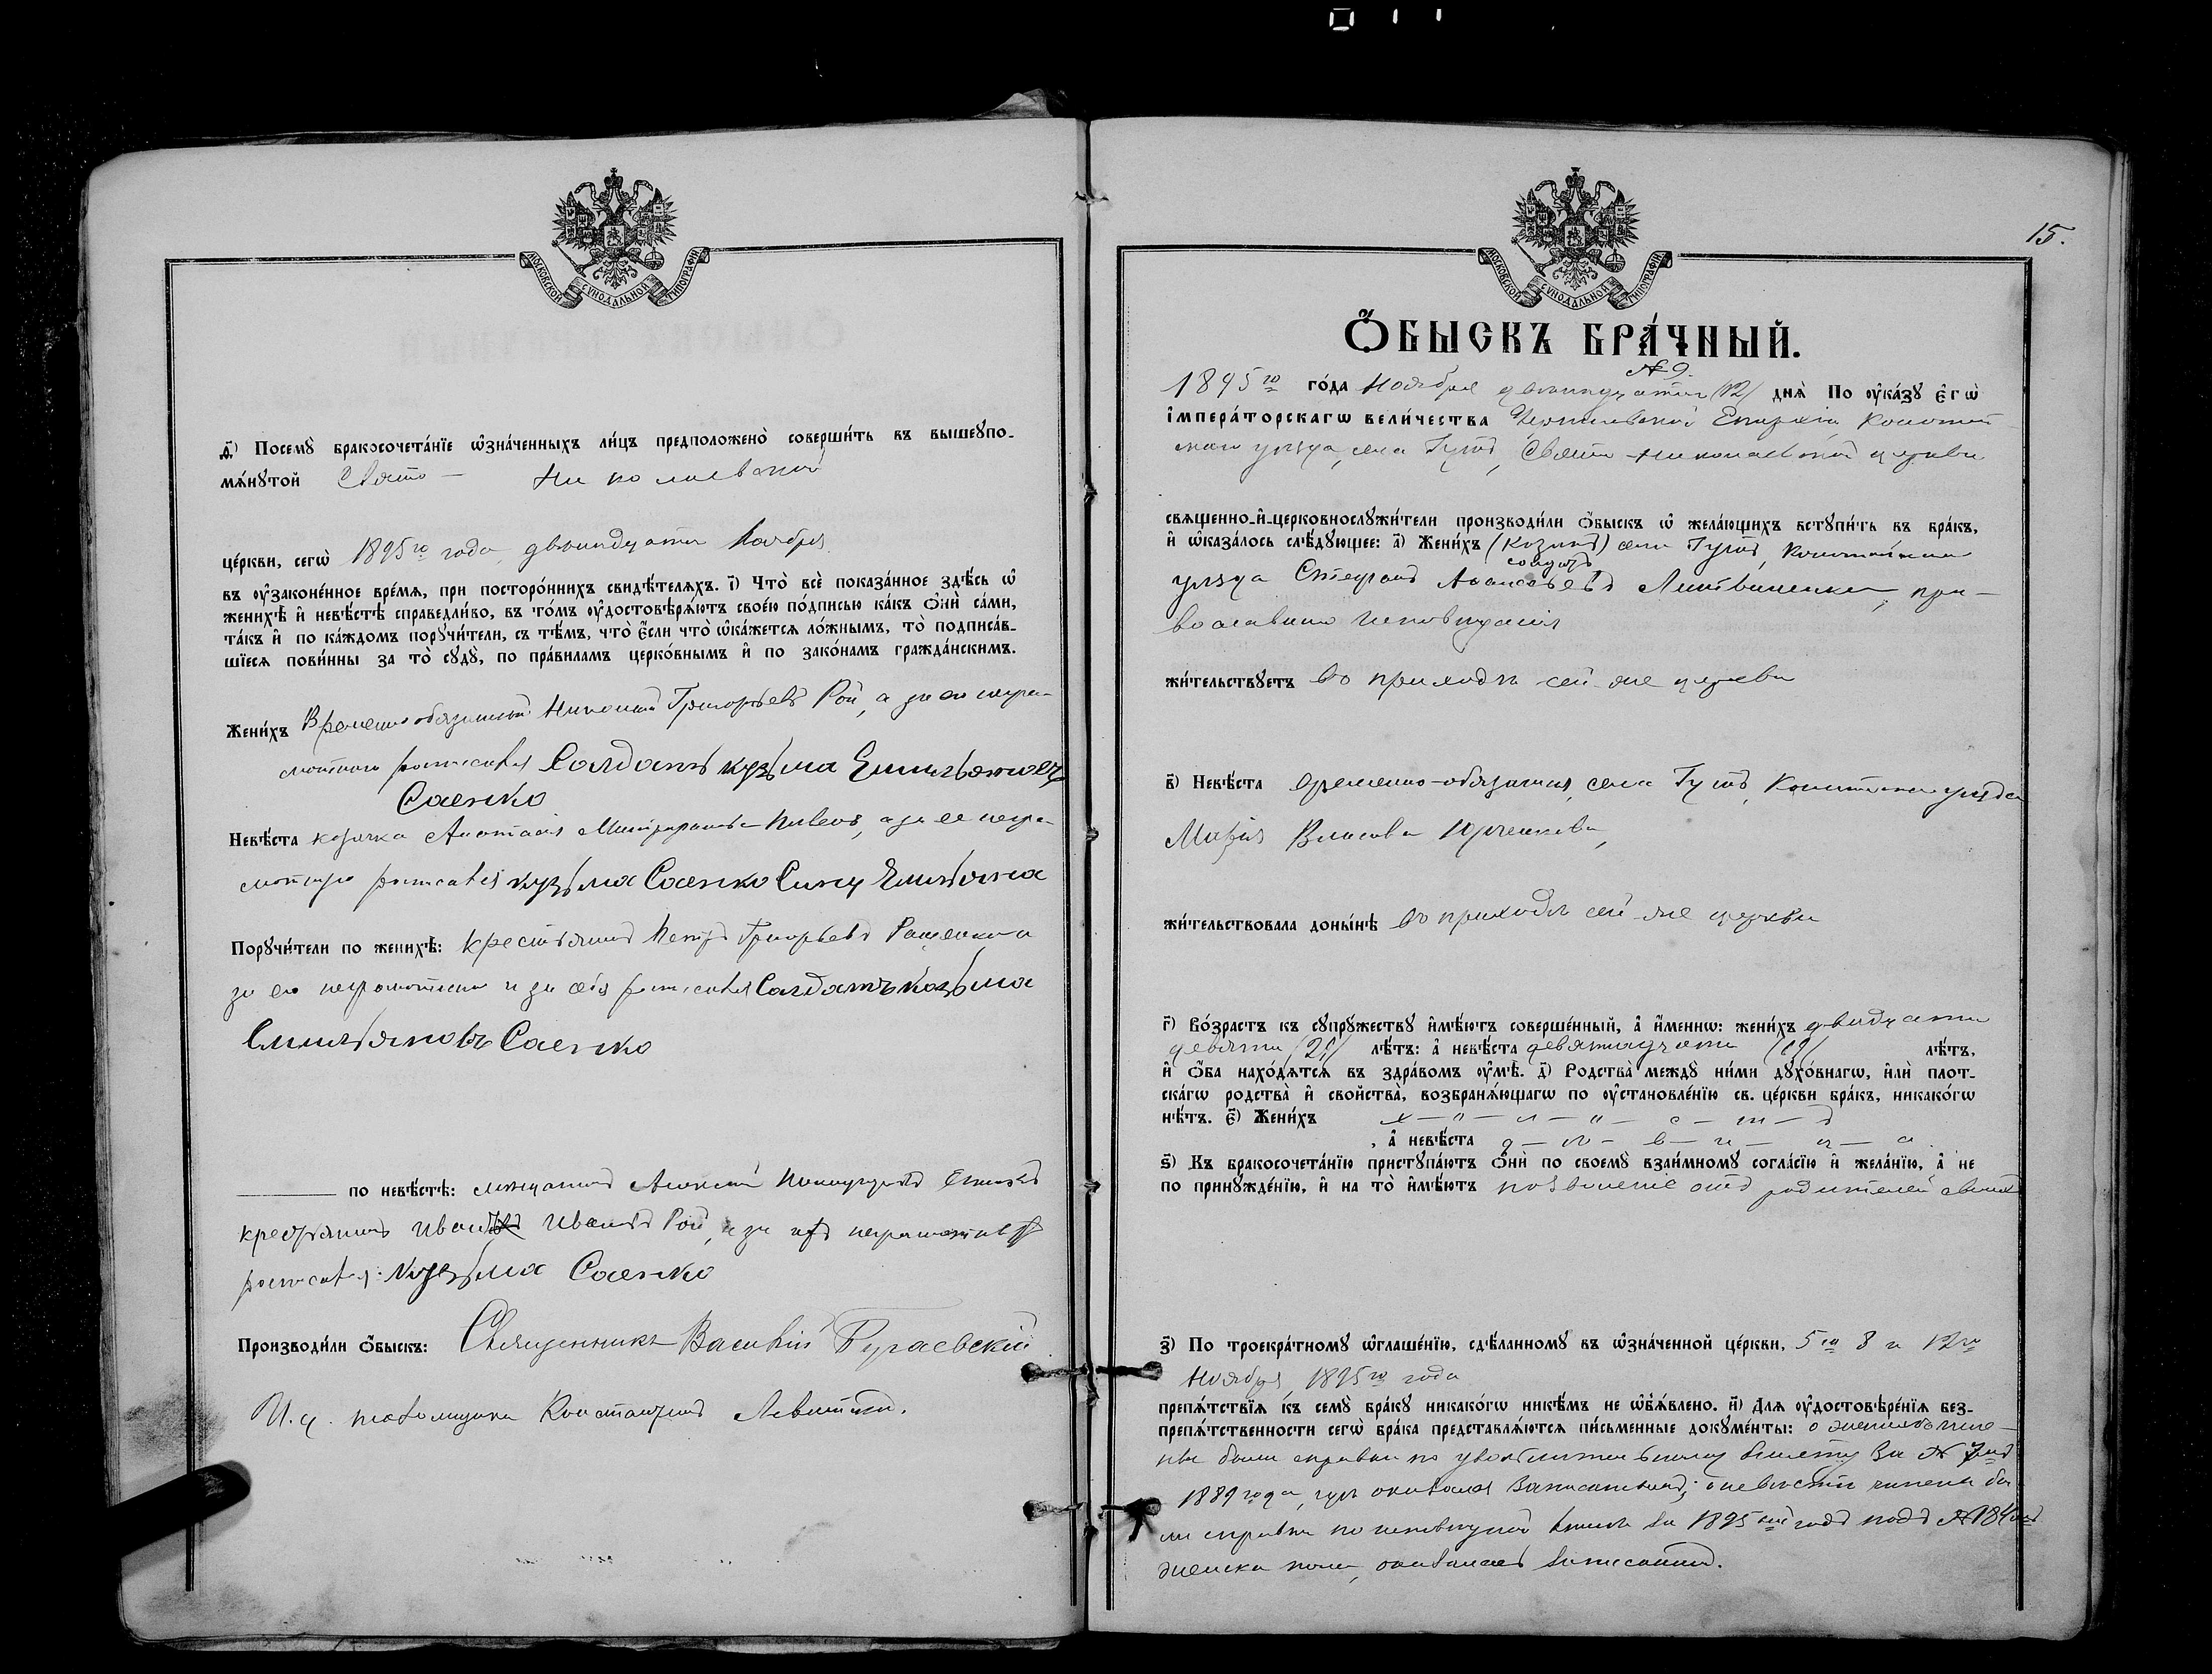 МОСКОВСКОЙ СѴНОДАЛЬНОЙ ТИПОГРАФІИ
д҃і) Посемꙋ̀ бракосочета́нїе ѡ҆зна́ченныхъ ли́цъ предположено̀ соверши́ть въ вышеꙋпо-
мѧ́нꙋтой Свято- Николаевской
це́ркви, сегѡ̀ 1895го года двѣнадцатаго Ноября
въ ᲂу҆зако́ненное вре́мѧ, при посторо́ннихъ свидѣ́телѧхъ. і҃) Что̀ всѐ показа́нное здѣ́сь ѡ҆
женихѣ̀ и҆ невѣ́стѣ справедли́во, въ то́мъ ᲂу҆достовѣрѧ́ютъ свое́ю по́дписью ка́къ ѻ҆нѝ са́ми,
та́къ и҆ по ка́ждомъ порꙋчи́тели, съ тѣ́мъ, что̀ є҆́сли что̀ ѡ҆ка́жетсѧ ло́жнымъ, то̀ подписа́в-
шїесѧ пови́нны за то̀ сꙋдꙋ̀, по пра́виламъ церко́внымъ и҆ по зако́намъ гражда́нскимъ.
Жени́хъ Временно обязанный Николай Григорьевъ Рой, а за его негра-
мотного росписался Салдатъ кузьма Емильяновъ
Саенко
Невѣ́ста козачка Анастасія Митрофанова, а за ее негра-
мотную росписался кузьма Саенко Синъ Емильяна
Порꙋчи́тели по женихѣ̀: крестьянинъ Петръ Григорьевъ
за его неграмотного и за себя росписался Салдатъ козьма
Емильяновъ Саенко
по невѣ́стѣ: мещанинъ Алексѣй
крестьянинъ Иванъ Ивановъ Рой, а за ихъ неграмотныхъ
росписался: Кузьма Саенко
Производи́ли ѻ҆́быскъ: Священникъ Василій Бугаевскій
И. д. псаломщика Константинъ Левитскій.
15.
МОСКОВСКОЙ СѴНОДАЛЬНОЙ ТИПОГРАФІИ
Ѻ҆́БЫСКЪ БРА́ЧНЫЙ.
№ 9.
1895го го́да Ноября двѣнадцатаго /12/ днѧ̀ По ᲂу҆ка́зꙋ є҆гѡ̀
і҆мпера́торскагѡ вели́чества Черниговской Епархіи, Конотоп-
скаго уѣзда, села Гутъ, Свято-Николаевской церкви
свѧщенно-и҆-церковнослꙋжи́тели производи́ли ѻ҆́быскъ ѡ҆ жела́ющихъ встꙋпи́ть въ бра́къ,
и҆ ѡ҆каза́лось слѣ́дꙋющее: а҃) Жени́хъ (козакъ) села Гутъ, Конотопскаго
солдатъ
уѣзда Стефанъ Аѳанасьевъ Литвиненко, пра-
вославнаго исповѣданія
жи́тельствꙋетъ въ приходѣ сей же церкви
в҃) Невѣ́ста временно-обязаная, села Гутъ, Конотопскаго уѣзда
Марія Власова Юрченкова,
жи́тельствовала доны́нѣ въ приходѣ сей же церкви
г҃) Во́зрастъ къ сꙋпрꙋ́жествꙋ и҆мѣ́ютъ соверше́нный, а҆ и҆́меннѡ: жени́хъ двадцати
девяти /29/ лѣ́тъ: а҆ невѣ́ста девятнадцати /19/ лѣ́тъ,
и҆ ѻ҆́ба нахо́дѧтсѧ въ здра́вомъ ᲂу҆мѣ̀. д҃) Родства̀ междꙋ̀ ни́ми дꙋхо́внагѡ, и҆лѝ плот-
ска́гѡ родства̀ и҆ сво́йства̀, возбранѧ́ющагѡ по ᲂу҆становле́нїю св. це́ркви бра́къ, никако́гѡ
нѣ́тъ. є҃) Жени́хъ х - о - л - о - с - т - ъ
, а҆ невѣ́ста д - ѣ - в - и - ц - а
ѕ҃) Къ бракосочета́нїю пристꙋпа́ютъ ѻ҆нѝ по своемꙋ̀ взаи́мномꙋ согла́сїю и҆ жела́нїю, а҆ не
по принꙋжде́нїю, и҆ на то̀ и҆мѣ́ютъ позволеніе отъ родителей своихъ
з҃) По троекра́тномꙋ ѡ҆глаше́нїю, сдѣ́ланномꙋ въ ѡ҆зна́ченной це́ркви, 5го 8 и 12го
Ноября, 1895го года
препѧ́тствїѧ къ семꙋ̀ бра́кꙋ никако́гѡ никѣ́мъ не ѡ҆б̾ѧ́влено. и҃) Длѧ ᲂу҆достовѣре́нїѧ без-
препѧ́тственности сегѡ̀ бра́ка представлѧ́ютсѧ пи́сьменные докꙋме́нты: о женихѣ чине-
ны были справки по увольнительному билету за №
1889 года, гдѣ оказался записанымъ; о невѣстѣ чинены бы
ли справки по исповѣдной книгѣ за 1895й годъ подъ № 184мъ
женска пола, оказалась записанна.